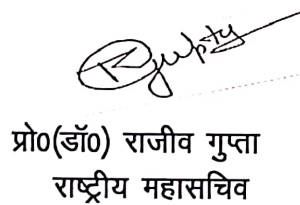 R Gupta
प्रो०(डॉ०) राजीव गुप्ता
राष्ट्रीय महासचिव